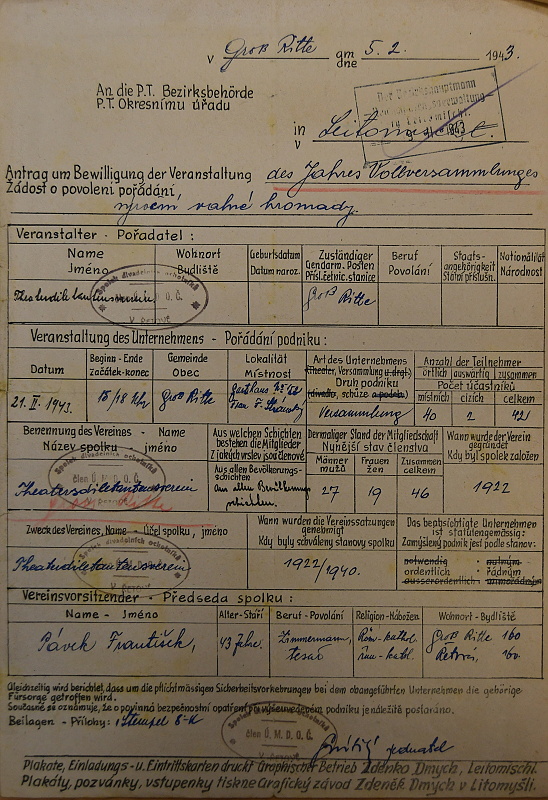 v Groß Ritte am 5.2. 1943.
dne
An die P.T. Bezirksbehörde
P.T. Okresnímu úřadu
in Leitomischl.
Antrag um Bewilligung der Veranstaltung des Jahres Vollversammlunges
Žádost o povolení pořádání,
výroční valné hromady.
Veranstalter - Pořadatel :
Name Wohnort Geburtsdatum Zuständiger Beruf Staats- Nationalität
Jméno Bydliště Datum naroz. Gendarm. Posten Povolání angehörigkeit Národnost
Přísl. četnic. stanice Státní příslušn.
Groß Ritte
Veranstaltung des Unternehmens - Pořádání podniku :
Datum Beginn - Ende Gemeinde Lokalität Art des Unternehmens Anzahl der Teilnehmer
začátek-konec Obec Místnost (theater, Versammlung u.drgl.) örtlich auswärtig zusammen
Druh podniku Počet účastníků
(divadlo, schůze a podob.) místních cizích celkem
21. II. 1943. 15/18 Uhr Groß Ritte Gasthaus Nr Versammlung 40 2 42
Benennung des Vereines - Name Aus welchen Schichten Dermaliger Stand der Mitgliedschaft Wann wurde der Verein
Název spolku - jméno bestehen die Mitglieder Nynější stav členstva gegründet
Z jakých vrstev jsou členové Kdy byl spolek založen
Männer Frauen Zusammen
mužů žen celkem
Aus allen Bevölkerungs-
schichten
Aus allen Bevölkerung
schichten.
Theaterdiletantenverein 27 19 46 1922
Zweck des Vereines, Name - Účel spolku, jméno Wann wurden die Vereinssatzungen Das beabsichtigte Unternehmen
genehmigt ist statutengemäss :
Kdy byly schváleny stanovy spolku Zamýšlený podnik jest podle stanov:
Theaterdiletantenverein 1922/1940. notwendig - nutným
ordentlich - řádným
ausserordentlich - mimořádným
Vereinsvorsitzender - Předseda spolku :
Name - Jméno Alter - Stáří Beruf - Povolání Religion - Nábožen. Wohnort - Bydliště
Pávek František, 43 Jahre. Zimmermann, Röm-kathol. Groß Ritte 160
tesař řím-katol.
Gleichzeitig wird berichtet, dass um die pflichtmässigen Sicherheitsvorkehrungen bei dem obangeführten Unternehmen die gehörige
Fürsorge getroffen wird.
Současně se oznamuje, že o povinná bezpečnostní opatření při výšeuvedeném podniku je náležitě postaráno.
Beilagen - Přílohy : Stempel
jednatel
Plakate, Einladungs- u. Eintrittskarten druckt Graphischer Betrieb Zdenko Dmych, Leitomischl.
Plakáty, pozvánky, vstupenky tiskne Grafický závod Zdeněk Dmych v Litomyšli.